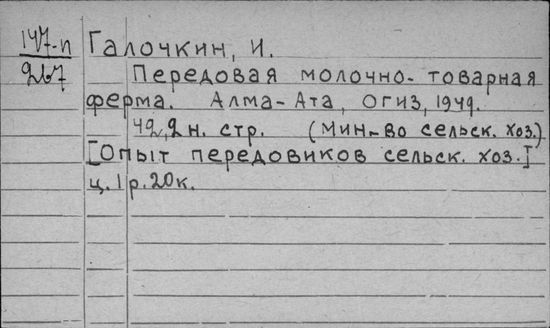 147-п
267
Галочкин, И.
Передовая молочно-товарная
ферма. Алма-Ата, ОГИЗ, 1949.
42,2н. стр. (Мин-во сельск. хоз.)
[Опыт передовиков сельск. хоз.]
ц. 1 р. 20к.